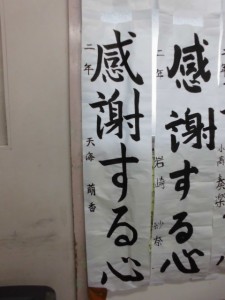 感謝する心
二年 天海 萌香
感謝する心
二年 岩崎 紗奈
二年